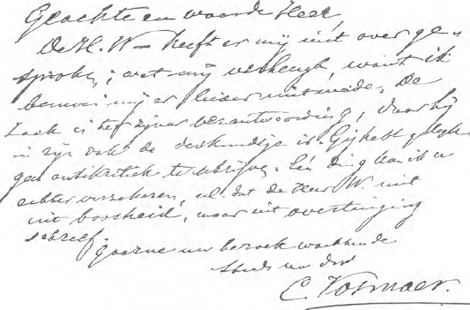 Geachte en waarde Heer,
De H. W— heeft er mij niet over ge-
sproken; wat mij verheugt, want ik
bemoei mij er liever niet mede. De
Zaak is op zijner verantwoording, daar hij
in zijn vak de deskundige is. Gij hebt gelijk
geen antikritiek te schrijven. Eén ding kan ik u
echter verzekeren, nl. dat de Heer W niet
uit boosheid, maar uit overtuiging
schreef.
Gaarne uw bezoek wachtende
steeds uw dw
C. Vosmaer.